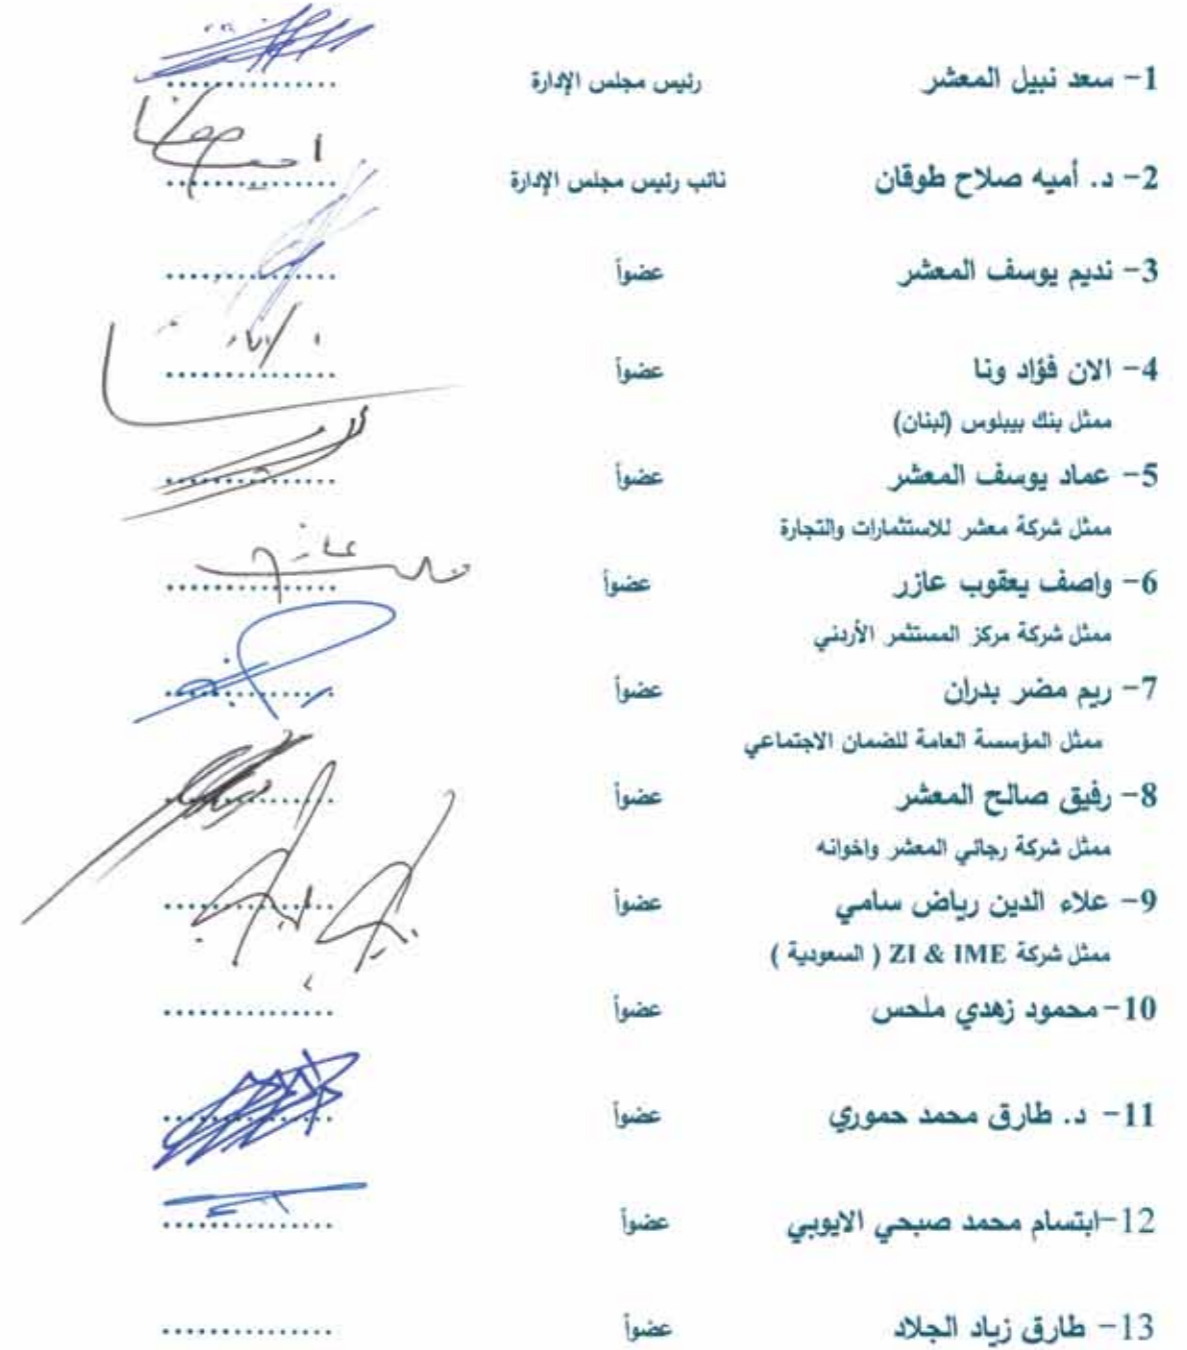 1- سعد نبيل المعشر رئيس مجلس الإدارة ..............
2- د. أميه صلاح طوقان نائب رئيس مجلس الإدارة ..............
3- نديم يوسف المعشر عضواً ..............
4- الان فؤاد ونا عضواً ..............
ممثل بنك بيبلوس (لبنان)
5- عماد يوسف المعشر عضواً ..............
ممثل شركة معشر للاستثمارات والتجارة
6- واصف يعقوب عازر عضواً ..............
ممثل شركة مركز المستثمر الأردني
7- ريم مضر بدران عضواً ..............
ممثل المؤسسة العامة للضمان الاجتماعي
8- رفيق صالح المعشر عضواً ..............
ممثل شركة رجائي المعشر واخوانه
9- علاء الدين رياض سامي عضواً ..............
ممثل شركة ZI & IME ( السعودية )
10- محمود زهدي ملحس عضواً ..............
11- د. طارق محمد حموري عضواً ..............
12-ابتسام محمد صبحي الايوبي عضواً ..............
13- طارق زياد الجلاد عضواً ..............